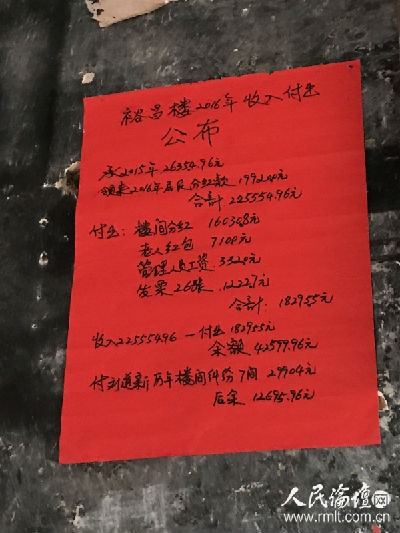 裕昌楼2016年收入付出
公布
承2015年26354.96元
领来2016年居民分红款199200元
合计225554.96元
付出：楼间分红 160308元
老人红包 7100元
管理人员工资 3320元
发票26张 12227元
合计 182955元
收入225554.96－付出182955元
余额42599.96元
付刘道新历年楼间份 7间 29904元
后余 12695.96元
人民论坛网
www.rmlt.com.cn